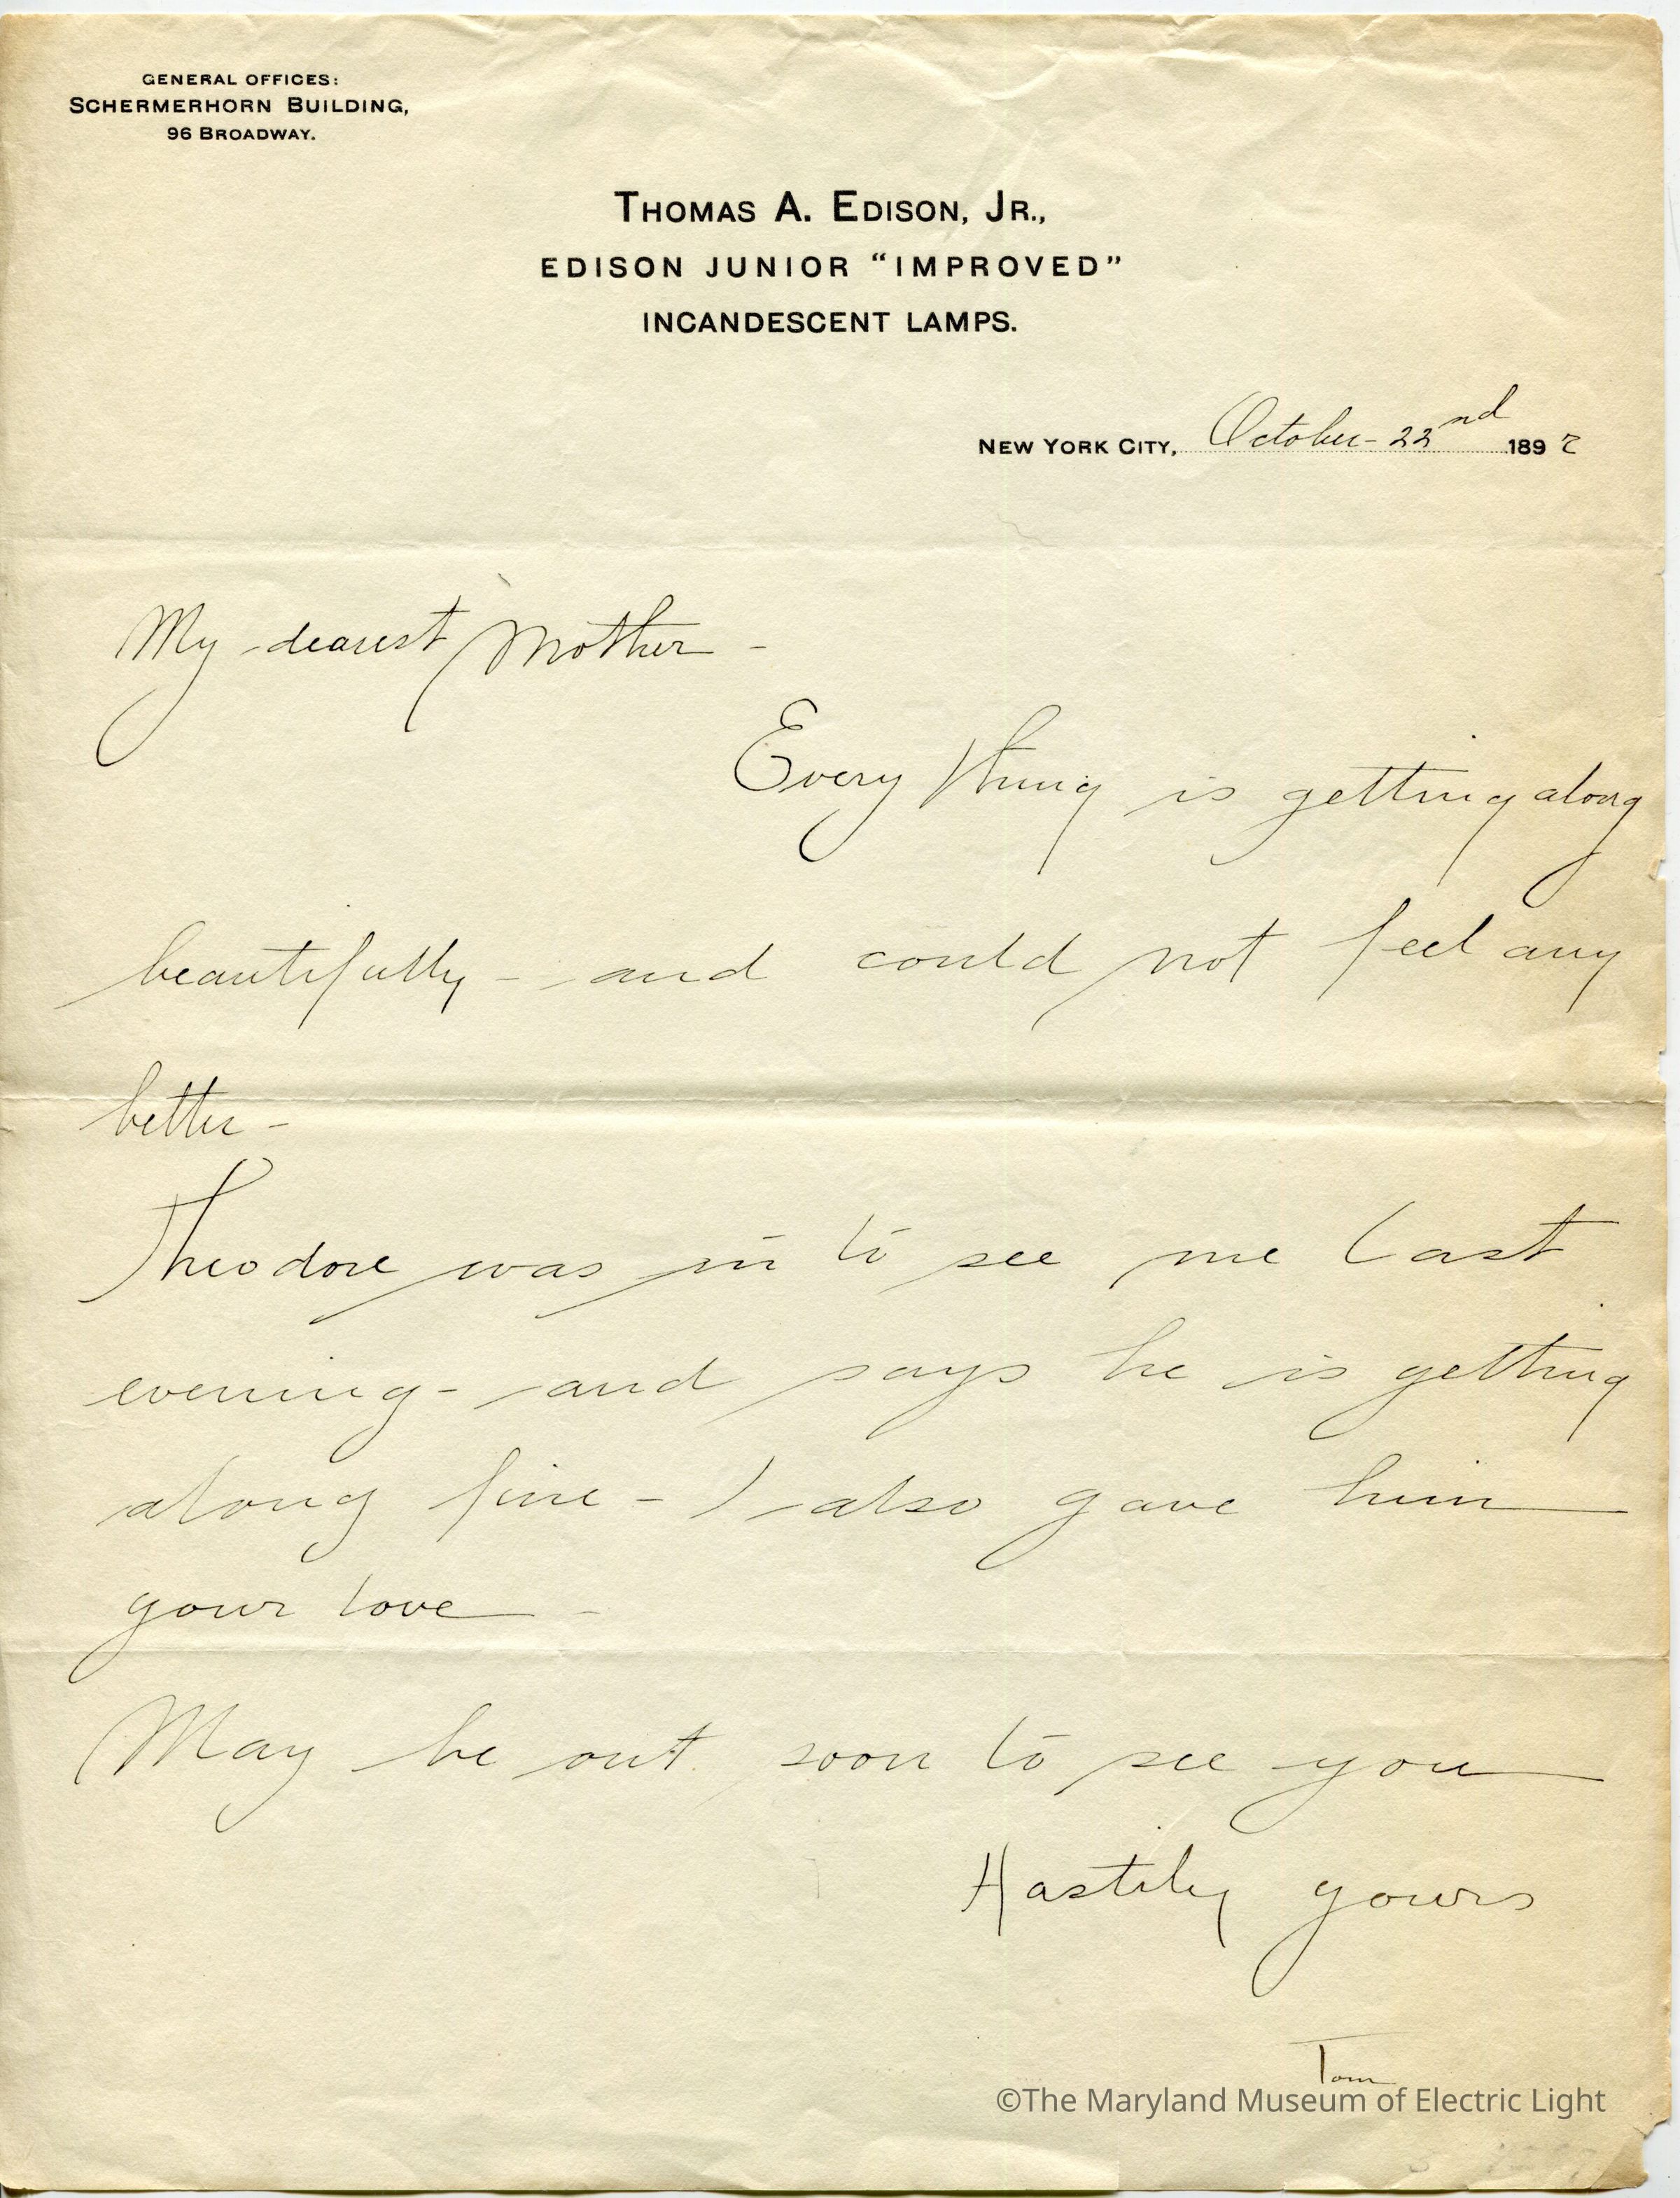 GENERAL OFFICES:
SCHERMERHORN BUILDING,
96 BROADWAY.
THOMAS A. EDISON, JR.,
EDISON JUNIOR "IMPROVED"
INCANDESCENT LAMPS.
NEW YORK CITY, October - 22nd 1897
My dearest Mother -
Every thing is getting along
beautifully - and could not feel any
better -
Theodore was in to see me last
evening - and says he is getting
along fine - I also gave him
your love -
May be out soon to see you
Hastily yours
Tom
©The Maryland Museum of Electric Light